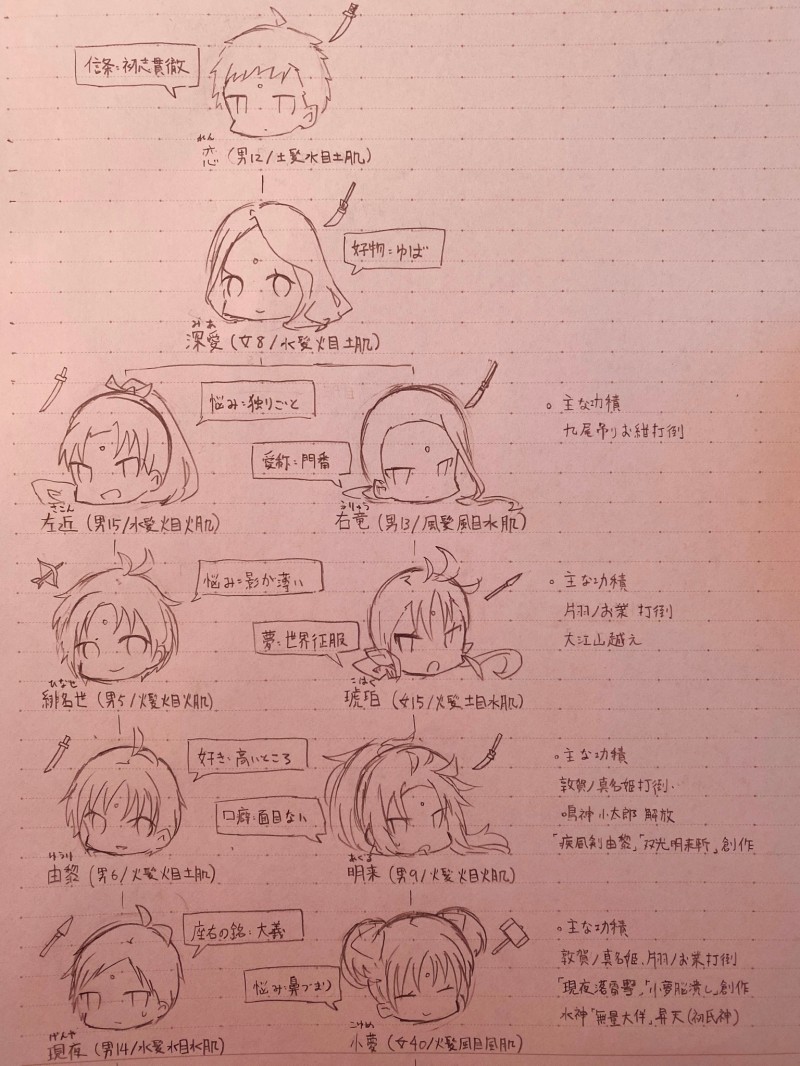 信条：初志貫徹
れん
恋（男12/土髪水目土肌）
好物：ゆば
みあ
深愛（女8/水髪火目土肌）
悩み：独りごと
愛称：門番
さこん
左近（男15/水髪火目火肌）
うりゅう
右竜（男13/風髪風目水肌）
。主な功積
九尾吊りお紺打倒
悩み：影が薄い
夢：世界征服
ひなせ
緋名世（男5/火髪火目火肌）
こはく
琥珀（女15/火髪土目水肌）
。主な功積
片羽ノお業 打倒
大江山越え
好き：高いところ
口癖：面目ない
ゆうり
由黎（男6/火髪火目土肌）
あくる
明来（男9/火髪火目火肌）
。主な功積
敦賀ノ真名姫打倒
鳴神小太郎 解放
「疾風剣由黎」「双光明来斬」創作
座右の銘：大義
悩み：鼻づまり
げんや
現夜（男14/水髪水目水肌）
こゆめ
小夢（女40/火髪風目風肌）
。主な功積
敦賀ノ真名姫、片羽ノお業打倒
「現夜落雷撃」「小夢脳潰し」創作
水神「無量大伴」昇天（初氏神）